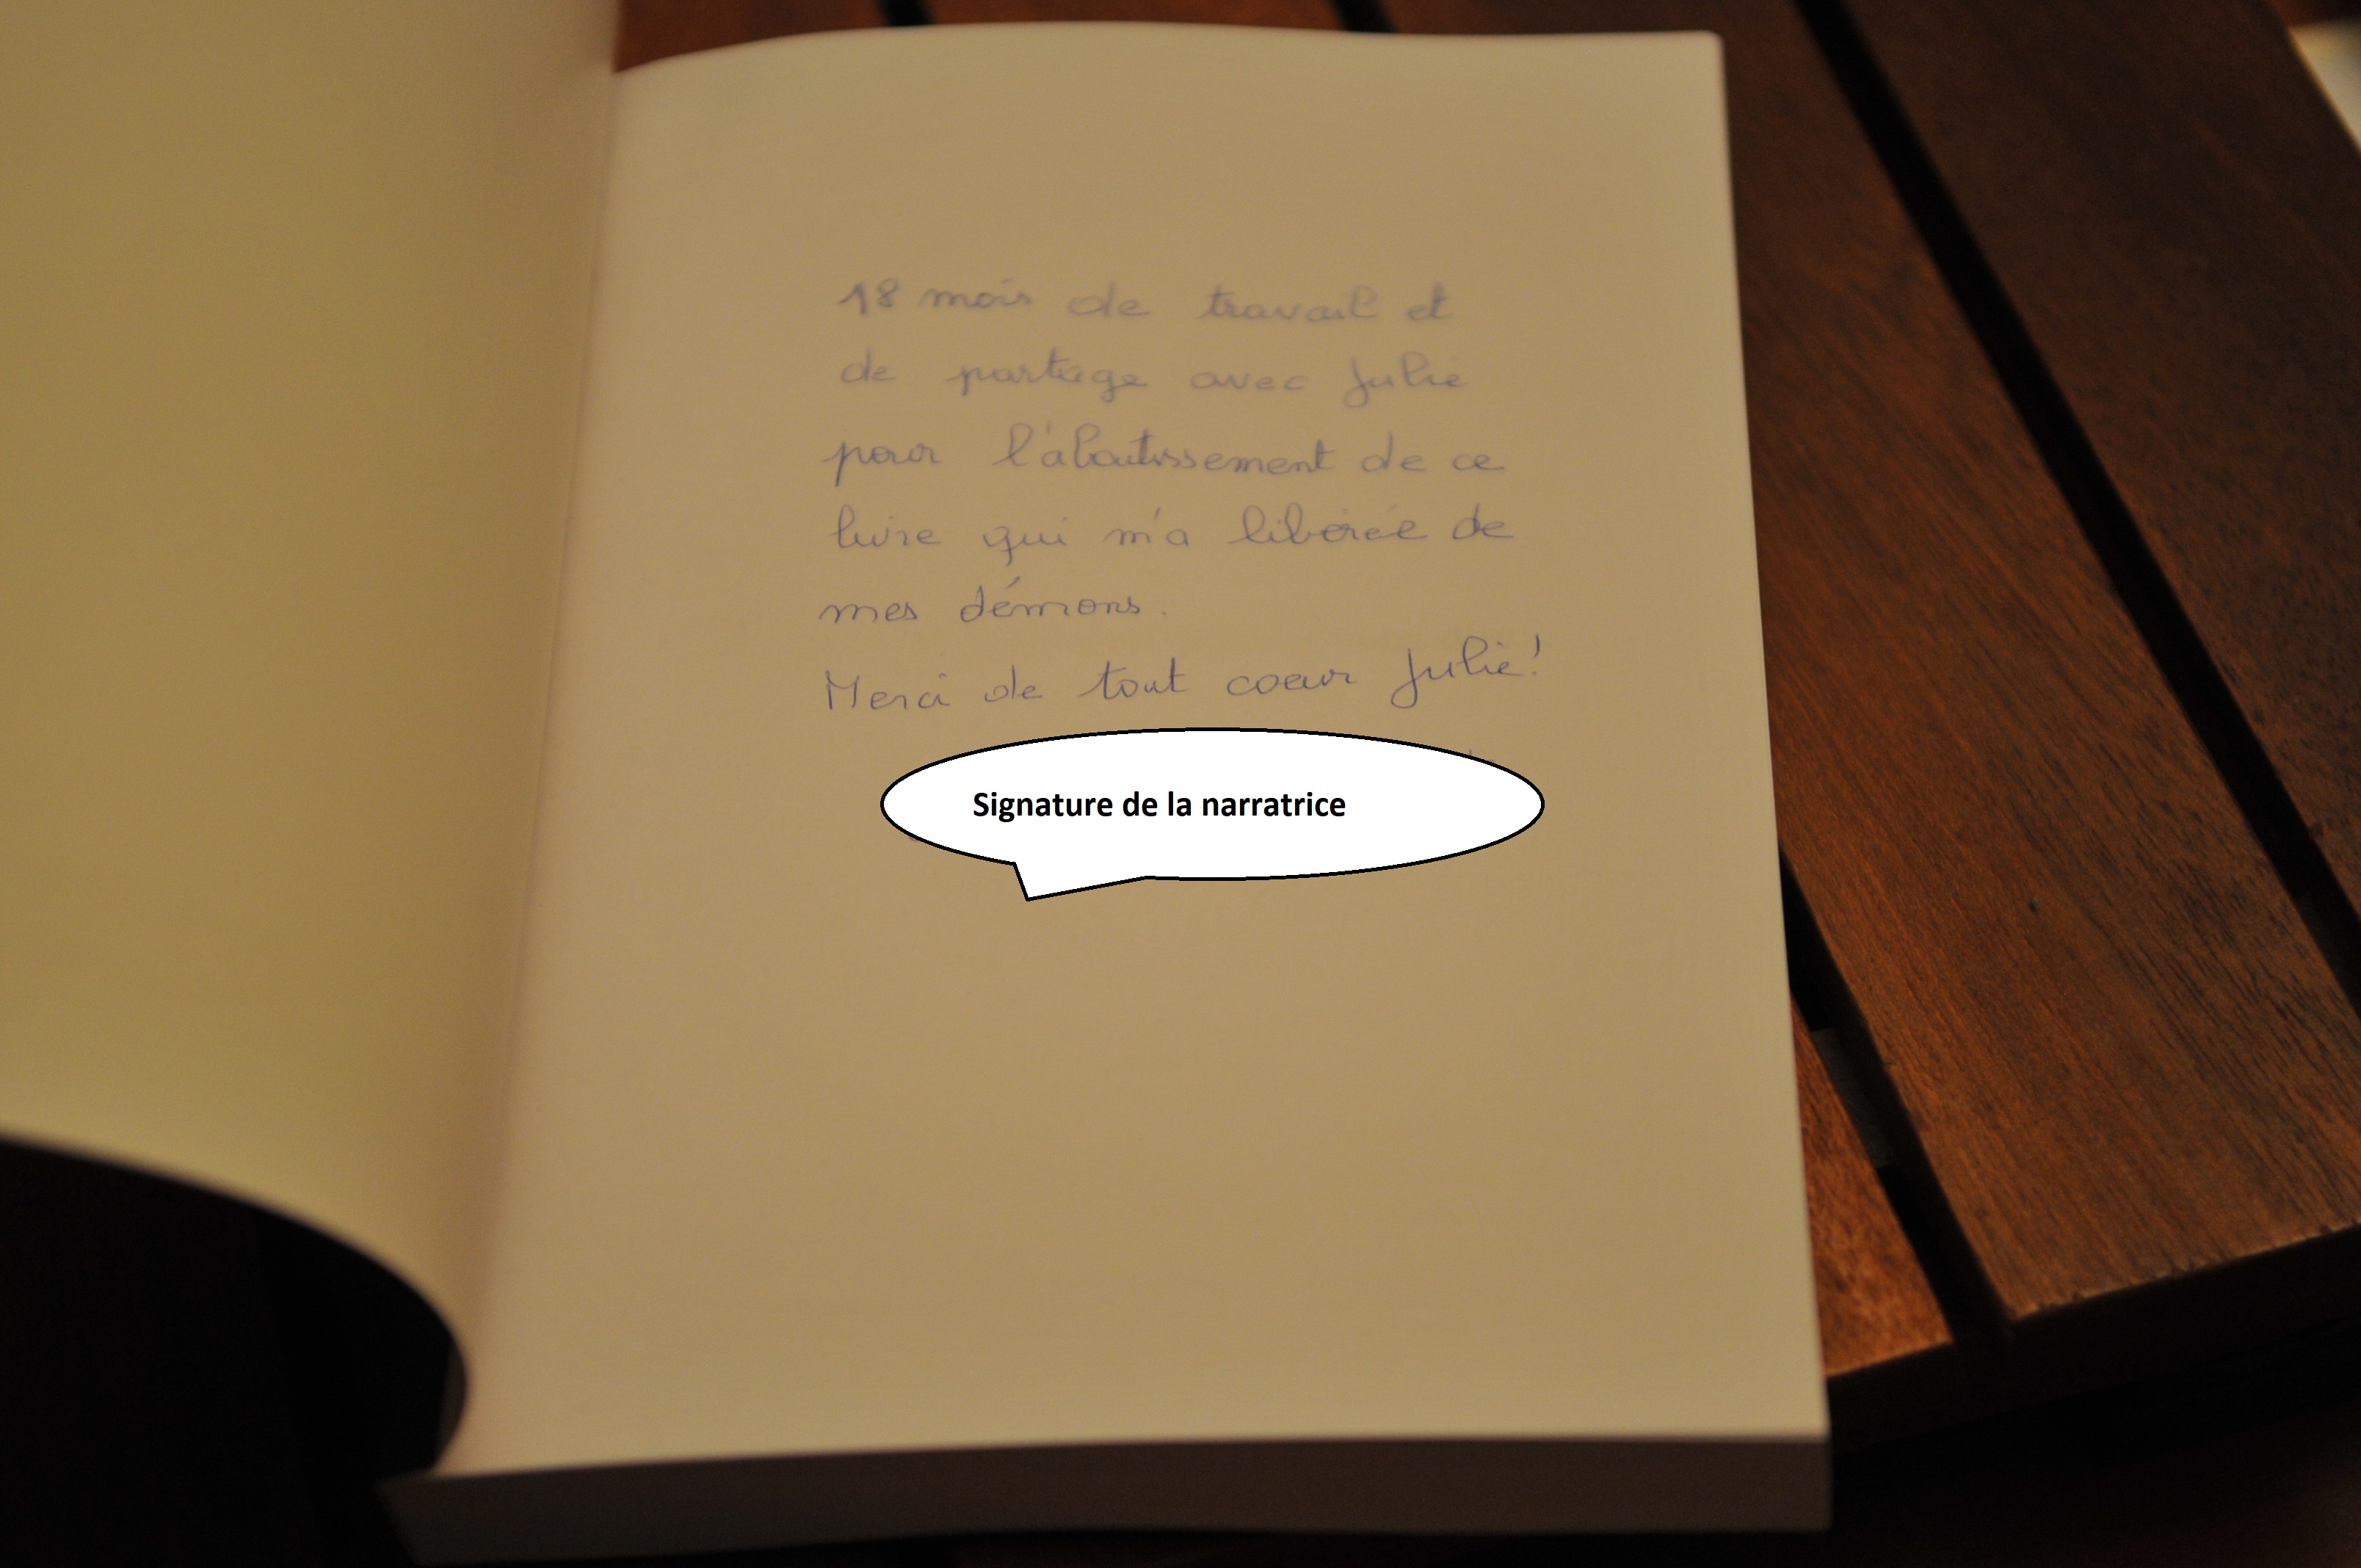 18 mois de travail et
de partage avec Julie
pour l'aboutissement de ce
livre qui m'a libérée de
mes démons.
Merci de tout coeur Julie!
Signature de la narratrice